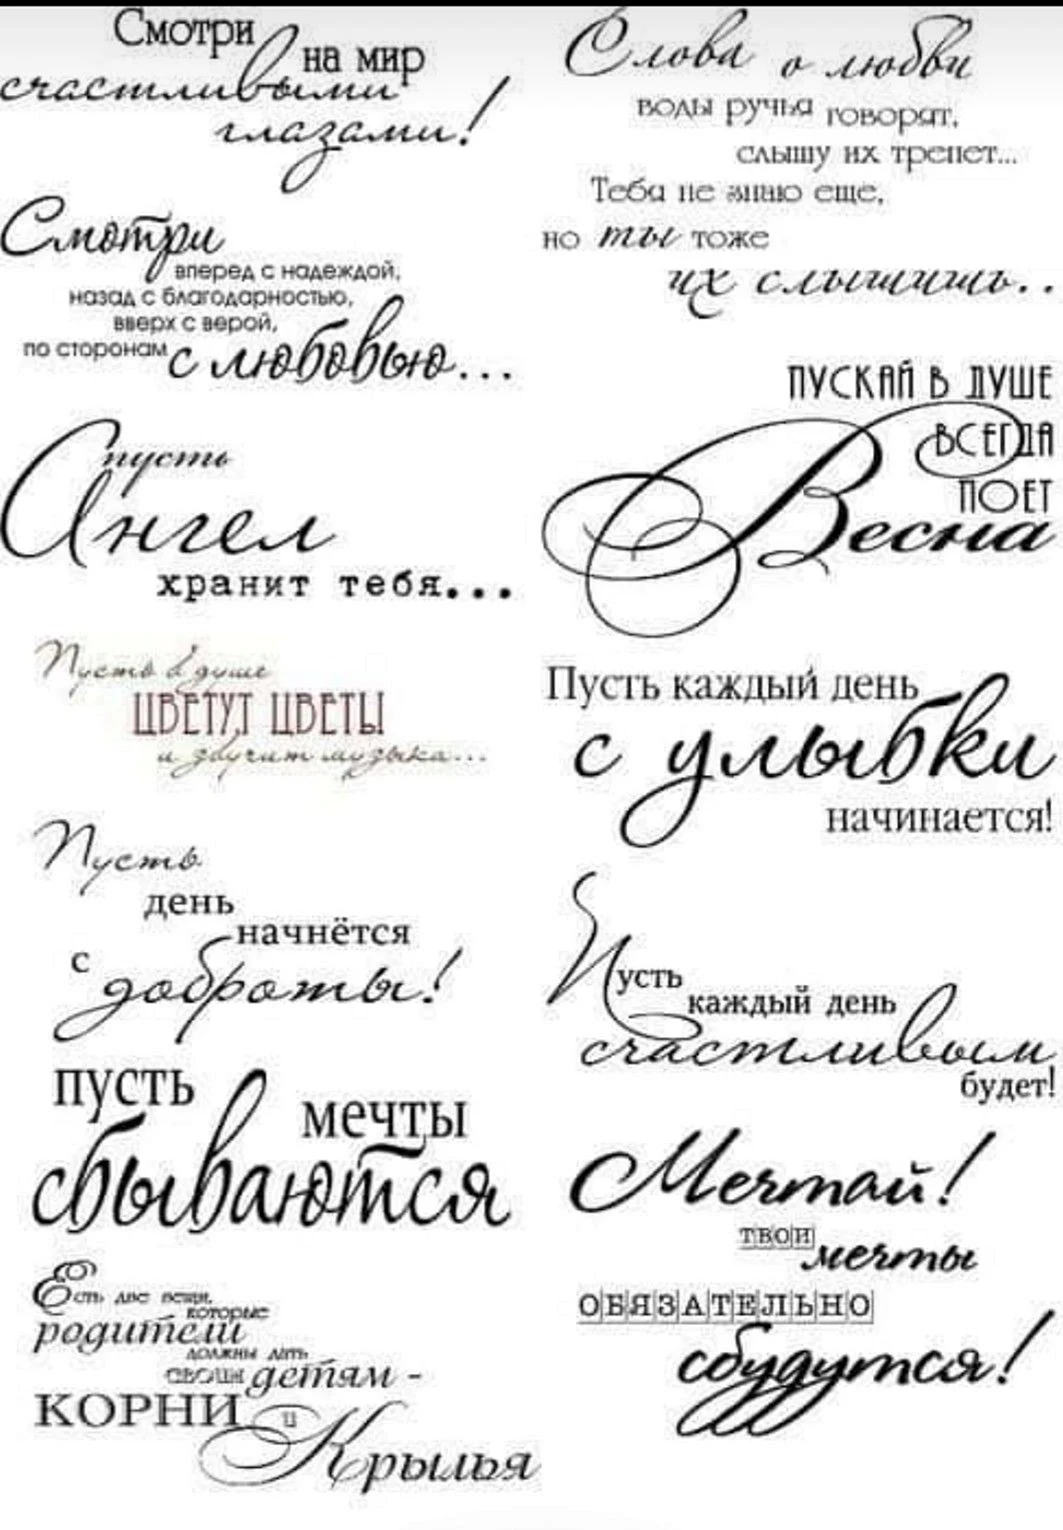 Смотри
на мир
счастливыми
глазами!
Смотри
вперед с надеждой,
назад с благодарностью,
вверх с верой,
по сторонам
с любовью...
пусть
Ангел
хранит тебя...
Пусть в душе
ЦВЕТУТ ЦВЕТЫ
и звучит музыка...
Пусть
день
начнётся
с доброты!
пусть
мечты
сбываются
Есть две вещи,
которые
родители
должны дать
своим детям -
КОРНИ и
Крылья
Слова о любви
воды ручья говорят,
слышу их трепет...
Тебя не знаю еще,
но ты тоже
их слышишь..
ПУСКАЙ В ДУШЕ
ВСЕГДА
ПОЕТ
Весна
Пусть каждый день
с улыбки
начинается!
Пусть
каждый день
счастливым
будет!
Мечтай!
твои
мечты
ОБЯЗАТЕЛЬНО
сбудутся!